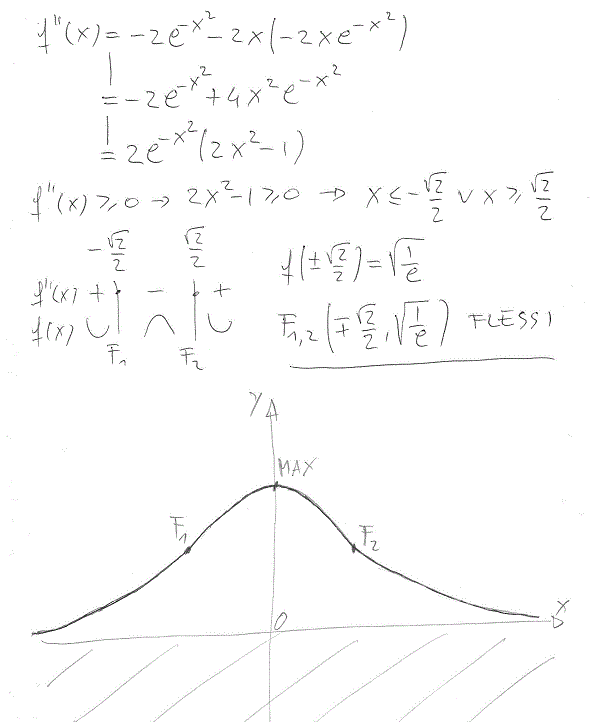 f''(x) = -2e^{-x²} - 2x(-2xe^{-x²})
= -2e^{-x²} + 4x²e^{-x²}
= 2e^{-x²}(2x² - 1)
f''(x) ≥ 0 → 2x² - 1 ≥ 0 → x ≤ -√2/2 ∨ x ≥ √2/2
-√2/2 √2/2
f(±√2/2) = √(1/e)
f''(x) + - +
f(x) ∪ ∩ ∪
F₁ F₂
F₁,₂ (∓√2/2, √(1/e)) FLESSI
y
MAX
F₁ F₂
0 x